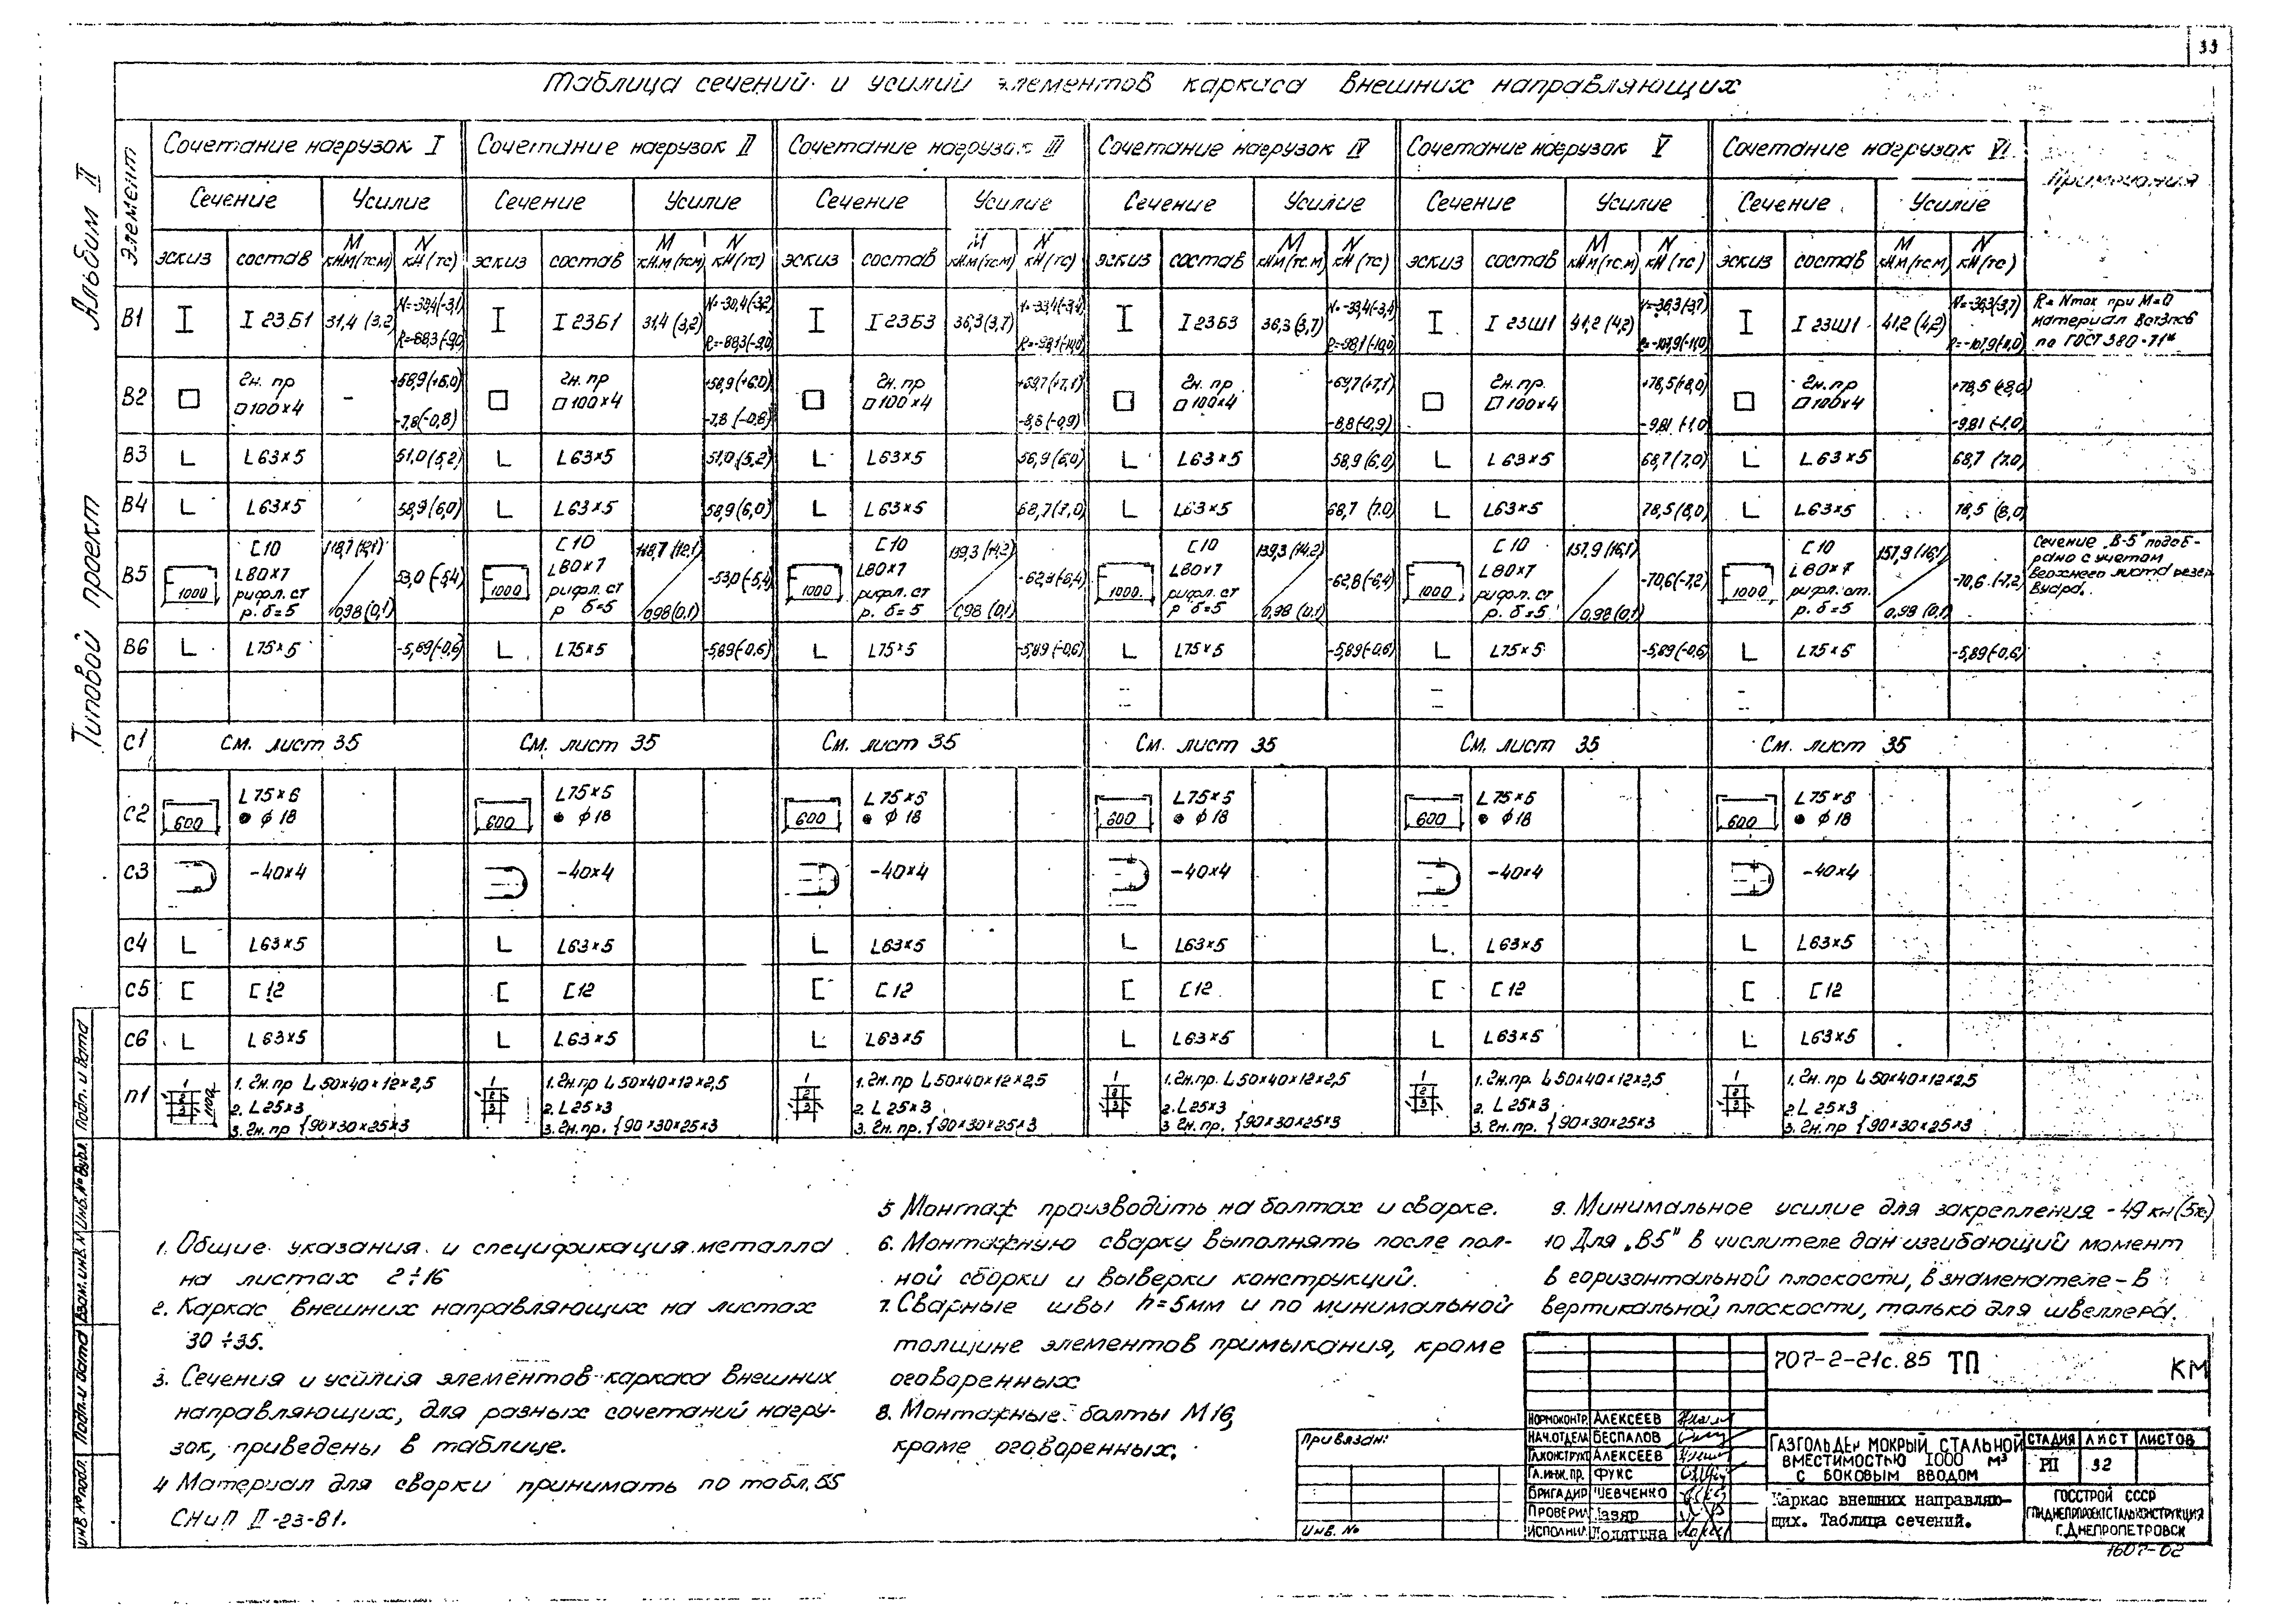 33
Таблица сечений и усилий элементов каркаса внешних направляющих
Альбом II
Типовой проект
Элемент
Сочетание нагрузок I
Сочетание нагрузок II
Сочетание нагрузок III
Сочетание нагрузок IV
Сочетание нагрузок V
Сочетание нагрузок VI
Примечания
Сечение Усилие Сечение Усилие Сечение Усилие Сечение Усилие Сечение Усилие Сечение Усилие
эскиз состав М кН.м(тс.м) N кН(тс) эскиз состав М кН.м(тсм) N кН(тс) эскиз состав М кН.м(тс.м) N кН(тс) эскиз состав М кН.м(тс.м) N кН(тс) эскиз состав М кН.м(тс.м) N кН(тс) эскиз состав М кН.м(тс.м) N кН(тс)
В1 I I 23Б1 31,4 (3,2) N=-30,4(-3,1) R=-88,3(-9,0) I I 23Б1 31,4 (3,2) N=-30,4(-3,2) R=-88,3(-9,0) I I 23Б3 36,3(3,7) N=-33,4(-3,4) R=-98,1(-10,0) I I 23Б3 36,3(3,7) N=-33,4(-3,4) R=-98,1(-10,0) I I 23Ш1 41,2 (4,2) N=-36,3(-3,7) R=-107,9(-11,0) I I 23Ш1 41,2 (4,2) N=-36,3(-3,7) R=-107,9(-11,0)
R = Nmax при М=0
материал Вст3пс6
по ГОСТ 380-71*
В2 Гн. пр □100×4 - +58,9(+6,0) -7,8(-0,8) Гн. пр □100×4 +58,9(+6,0) -7,8 (-0,8) Гн. пр □100×4 +69,7(+7,1) -8,8(-0,9) Гн. пр □100×4 +69,7(+7,1) -8,8(-0,9) Гн. пр. □100×4 +78,5(+8,0) -9,81 (-1,0) Гн. пр □100×4 +78,5(+8,0) -9,81 (-1,0)
В3 L L63×5 51,0(5,2) L L63×5 51,0(5,2) L L63×5 58,9(6,0) L L63×5 58,9(6,0) L L63×5 68,7(7,0) L L63×5 68,7 (7,0)
В4 L L63×5 58,9(6,0) L L63×5 58,9(6,0) L L63×5 68,7(7,0) L L63×5 68,7 (7,0) L L63×5 78,5(8,0) L L63×5 78,5 (8,0)
В5 1000 [10 L80×7 рифл. ст р. δ=5 118,7(12,1) 0,98(0,1) -53,0(-5,4) 1000 [10 L80×7 рифл. ст р δ=5 118,7(12,1) 0,98(0,1) -53,0(-5,4) 1000 [10 L80×7 рифл. ст р. δ=5 139,3(14,2) 0,98(0,1) -62,8(-6,4) 1000 [10 L80×7 рифл. ст р δ=5 139,3(14,2) 0,98(0,1) -62,8(-6,4) 1000 [10 L80×7 рифл. ст р. δ=5 157,9(16,1) 0,98(0,1) -70,6(-7,2) 1000 [10 L80×7 рифл. ст. р. δ=5 157,9(16,1) 0,98(0,1) -70,6(-7,2)
Сечение „В-5" подоб-
рано с учетом
верхнего листа резер
вуара.
В6 L L75×5 -5,89(-0,6) L L75×5 -5,89(-0,6) L L75×5 -5,89(-0,6) L L75×5 -5,89(-0,6) L L75×5 -5,89(-0,6) L L75×5 -5,89(-0,6)
С1 См. лист 35 См. лист 35 См. лист 35 См. лист 35 См. лист 35 См. лист 35
С2 600 L75×6 ● φ18 600 L75×5 ● φ18 600 L75×5 ● φ18 600 L75×5 ● φ18 600 L75×5 ● φ18 600 L75×5 ● φ18
С3 -40×4 -40×4 -40×4 -40×4 -40×4 -40×4
С4 L L63×5 L L63×5 L L63×5 L L63×5 L L63×5 L L63×5
С5 [ [12 [ [12 [ [12 [ [12 [ [12 [ [12
С6 L L63×5 L L63×5 L L63×5 L L63×5 L L63×5 L L63×5
П1 1 2 3 1. Гн. пр L50×40×12×2,5 2. L25×3 3. Гн. пр {90×30×25×3
1 2 3 1. Гн. пр L50×40×12×2,5 2. L25×3 3. Гн. пр. {90×30×25×3
1 2 3 1. Гн. пр L50×40×12×2,5 2. L25×3 3. Гн. пр. {90×30×25×3
1 2 3 1. Гн. пр. L50×40×12×2,5 2. L25×3 3 Гн. пр. {90×30×25×3
1 2 3 1. Гн. пр. L50×40×12×2,5 2. L25×3 3. Гн. пр. {90×30×25×3
1 2 3 1. Гн. пр L50×40×12×2,5 2. L25×3 3. Гн. пр {90×30×25×3
1. Общие указания и спецификация металла
на листах 2÷16
2. Каркас внешних направляющих на листах
30÷35.
3. Сечения и усилия элементов каркаса внешних
направляющих, для разных сочетаний нагру-
зок, приведены в таблице.
4 Материал для сварки принимать по табл. 55
СНиП II-23-81.
5 Монтаж производить на болтах и сварке.
6. Монтажную сварку выполнять после пол-
ной сборки и выверки конструкций.
7. Сварные швы h=5мм и по минимальной
толщине элементов примыкания, кроме
оговоренных
8. Монтажные болты М16,
кроме оговоренных.
9. Минимальное усилие для закрепления - 49 кн(5тс)
10 Для „В5" в числителе дан изгибающий момент
в горизонтальной плоскости, в знаменателе - в
вертикальной плоскости, только для швеллера.
Инв.№подл. Подп. и дата Взам.инв.№ Инв.№дубл. Подп. и дата
Привязан:
Инв. №
707-2-21с.85 ТП КМ
Нормоконтр. Алексеев
Нач.отдела Беспалов
Гл.конструк Алексеев
Гл.инж.пр. Фукс
Бригадир Шевченко
Проверил Лазяр
Исполнил
Газгольдер мокрый стальной
вместимостью 1000 м³
с боковым вводом
Стадия Лист Листов
РП 32
Каркас внешних направляю-
щих. Таблица сечений.
ГОССТРОЙ СССР
ГПИДНЕПРПРОЕКТСТАЛЬКОНСТРУКЦИЯ
Г.ДНЕПРОПЕТРОВСК
1607-02